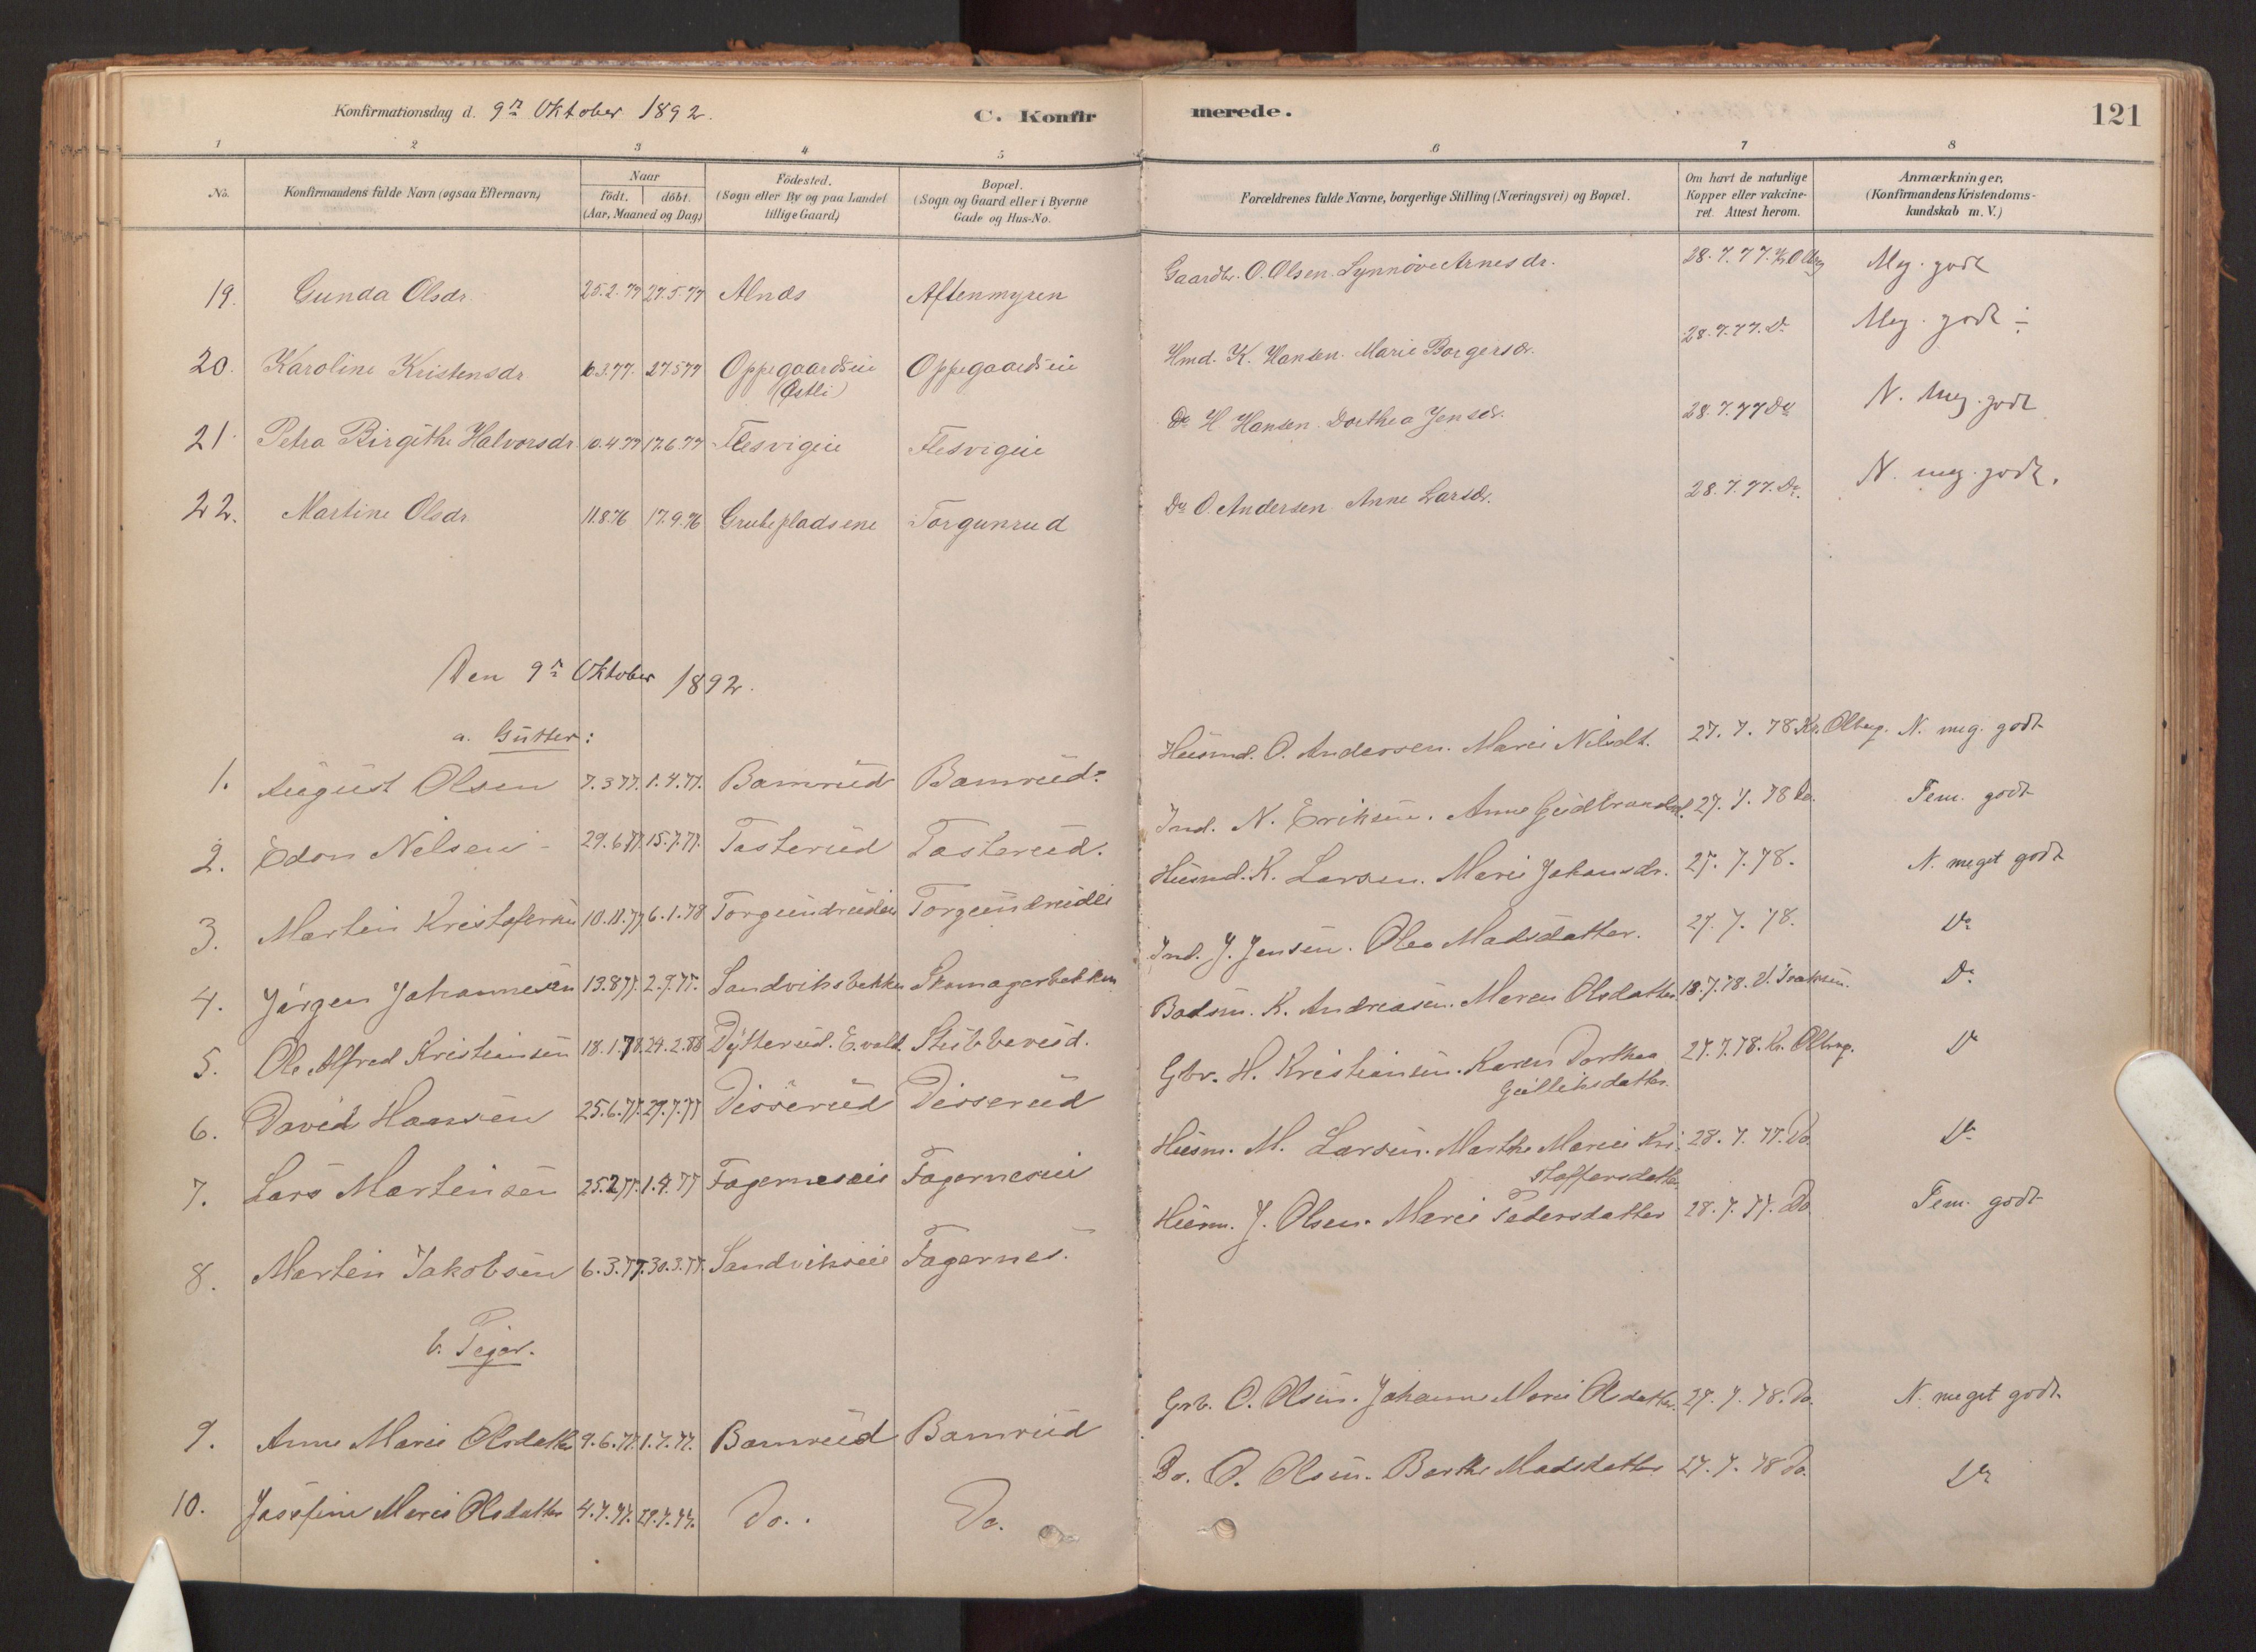 Konfirmationsdag d. 9de Oktober 1892. C. Konfir merede. 121
1 2 3 4 5 6 7 8
No. Konfirmandens fulde Navn (ogsaa Efternavn) Naar født. døbt. (Aar, Maaned og Dag) Födested. (Sogn eller By og paa Landet tillige Gaard) Bopæl. (Sogn og Gaard eller i Byerne Gade og Hus-No. Forældrenes fulde Navne, borgerlige Stilling (Næringsvei) og Bopæl. Om havt de naturlige Kopper eller vakcineret. Attest herom. Anmærkninger, (Konfirmandens Kristendomskundskab m. V.)
19. Gunda Olsdr. 25.2.77 27.5.77 Alnæs Aftenmyren Gaardbr. O. Olsen. Synnøve Arnesdr. 28.7.77. Meg. godt
20. Karoline Kristensdr. 10.3.77. 27.5.77 Oppegaardseie (Østli) Oppegaardseie Hmd. K. Hansen. Marie Borgersdr. 28.7.77. Do Meg. godt ÷
21. Petra Birgithe Halvorsdr. 10.4.77 17.6.77 Flesvigeie Flesvigeie Do H. Hansen. Dorthea Jensdr. 28.7.77 Do N. meg. godt
22. Martine Olsdr. 11.8.76 17.9.76 Grubepladsene Torgunrud Do O. Andersen Anne Larsdr. 28.7.77. Do. N. meg. godt.
Den 9de Oktober 1892.
a. Gutter:
1. August Olsen 7.3.77. 1.4.77. Bamrud Bamrud. Husmd. O. Andersen. Marie Nilsdt. 27.7.78 Kr. Olbrg. N. meg. godt
2. Edon Nilsen 29.6.77. 15.7.77. Tasterud Tasterud. Ind. N. Eriksen. Anne Gudbrandsd. 27.7.78 Do. Tem. godt
3. Martin Kristofersen 10.11.77 6.1.78 Torgundrudeie Torgundrudei Husmd. K. Larsen. Marie Johansdr. 27.7.78. N. meget godt
4. Jørgen Johannesen 13.8.77. 2.9.77. Sandviksbekken Skomagerbekken Ind. J. Jensen. Olea Madsdatter. 27.7.78. Do
5. Ole Alfred Kristiansen 18.1.78. 24.2.88 Dytterud. E. vold. Stubberud. Baadsm. K. Andreasen. Maren Olsdatter 18.7.78. U. Isaksen. Do
6. David Hansen 25.6.77. 29.7.77 Disserud Disserud Gbr. H. Kristiansen. Karen Dorthea Gulliksdatter. 27.7.78. Kr. Olbrg. Do
7. Lars Martinsen 25.2.77. 1.4.77 Fagerneseie Fagerneseie Husm. M. Larsen. Marthe Marie Kristoffersdatter 28.7.77. Do. Do
8. Martin Jakobsen 6.3.77. 30.3.77. Sandvikseie Fagernes. Husm. J. Olsen. Marie Pedersdatter 28.7.77. Do. Tem. godt
b. Piger.
9. Anne Marie Olsdatter 9.6.77. 1.7.77. Bamrud Bamrud Grb. O. Olsen. Johanne Marie Olsdatter. 27.7.78. Do. N. meget godt.
10. Josefine Marie Olsdatter 4.7.77. 29.7.77. Do. Do. Do. O. Olsen. Berthe Madsdatter 27.7.78 Do. Do